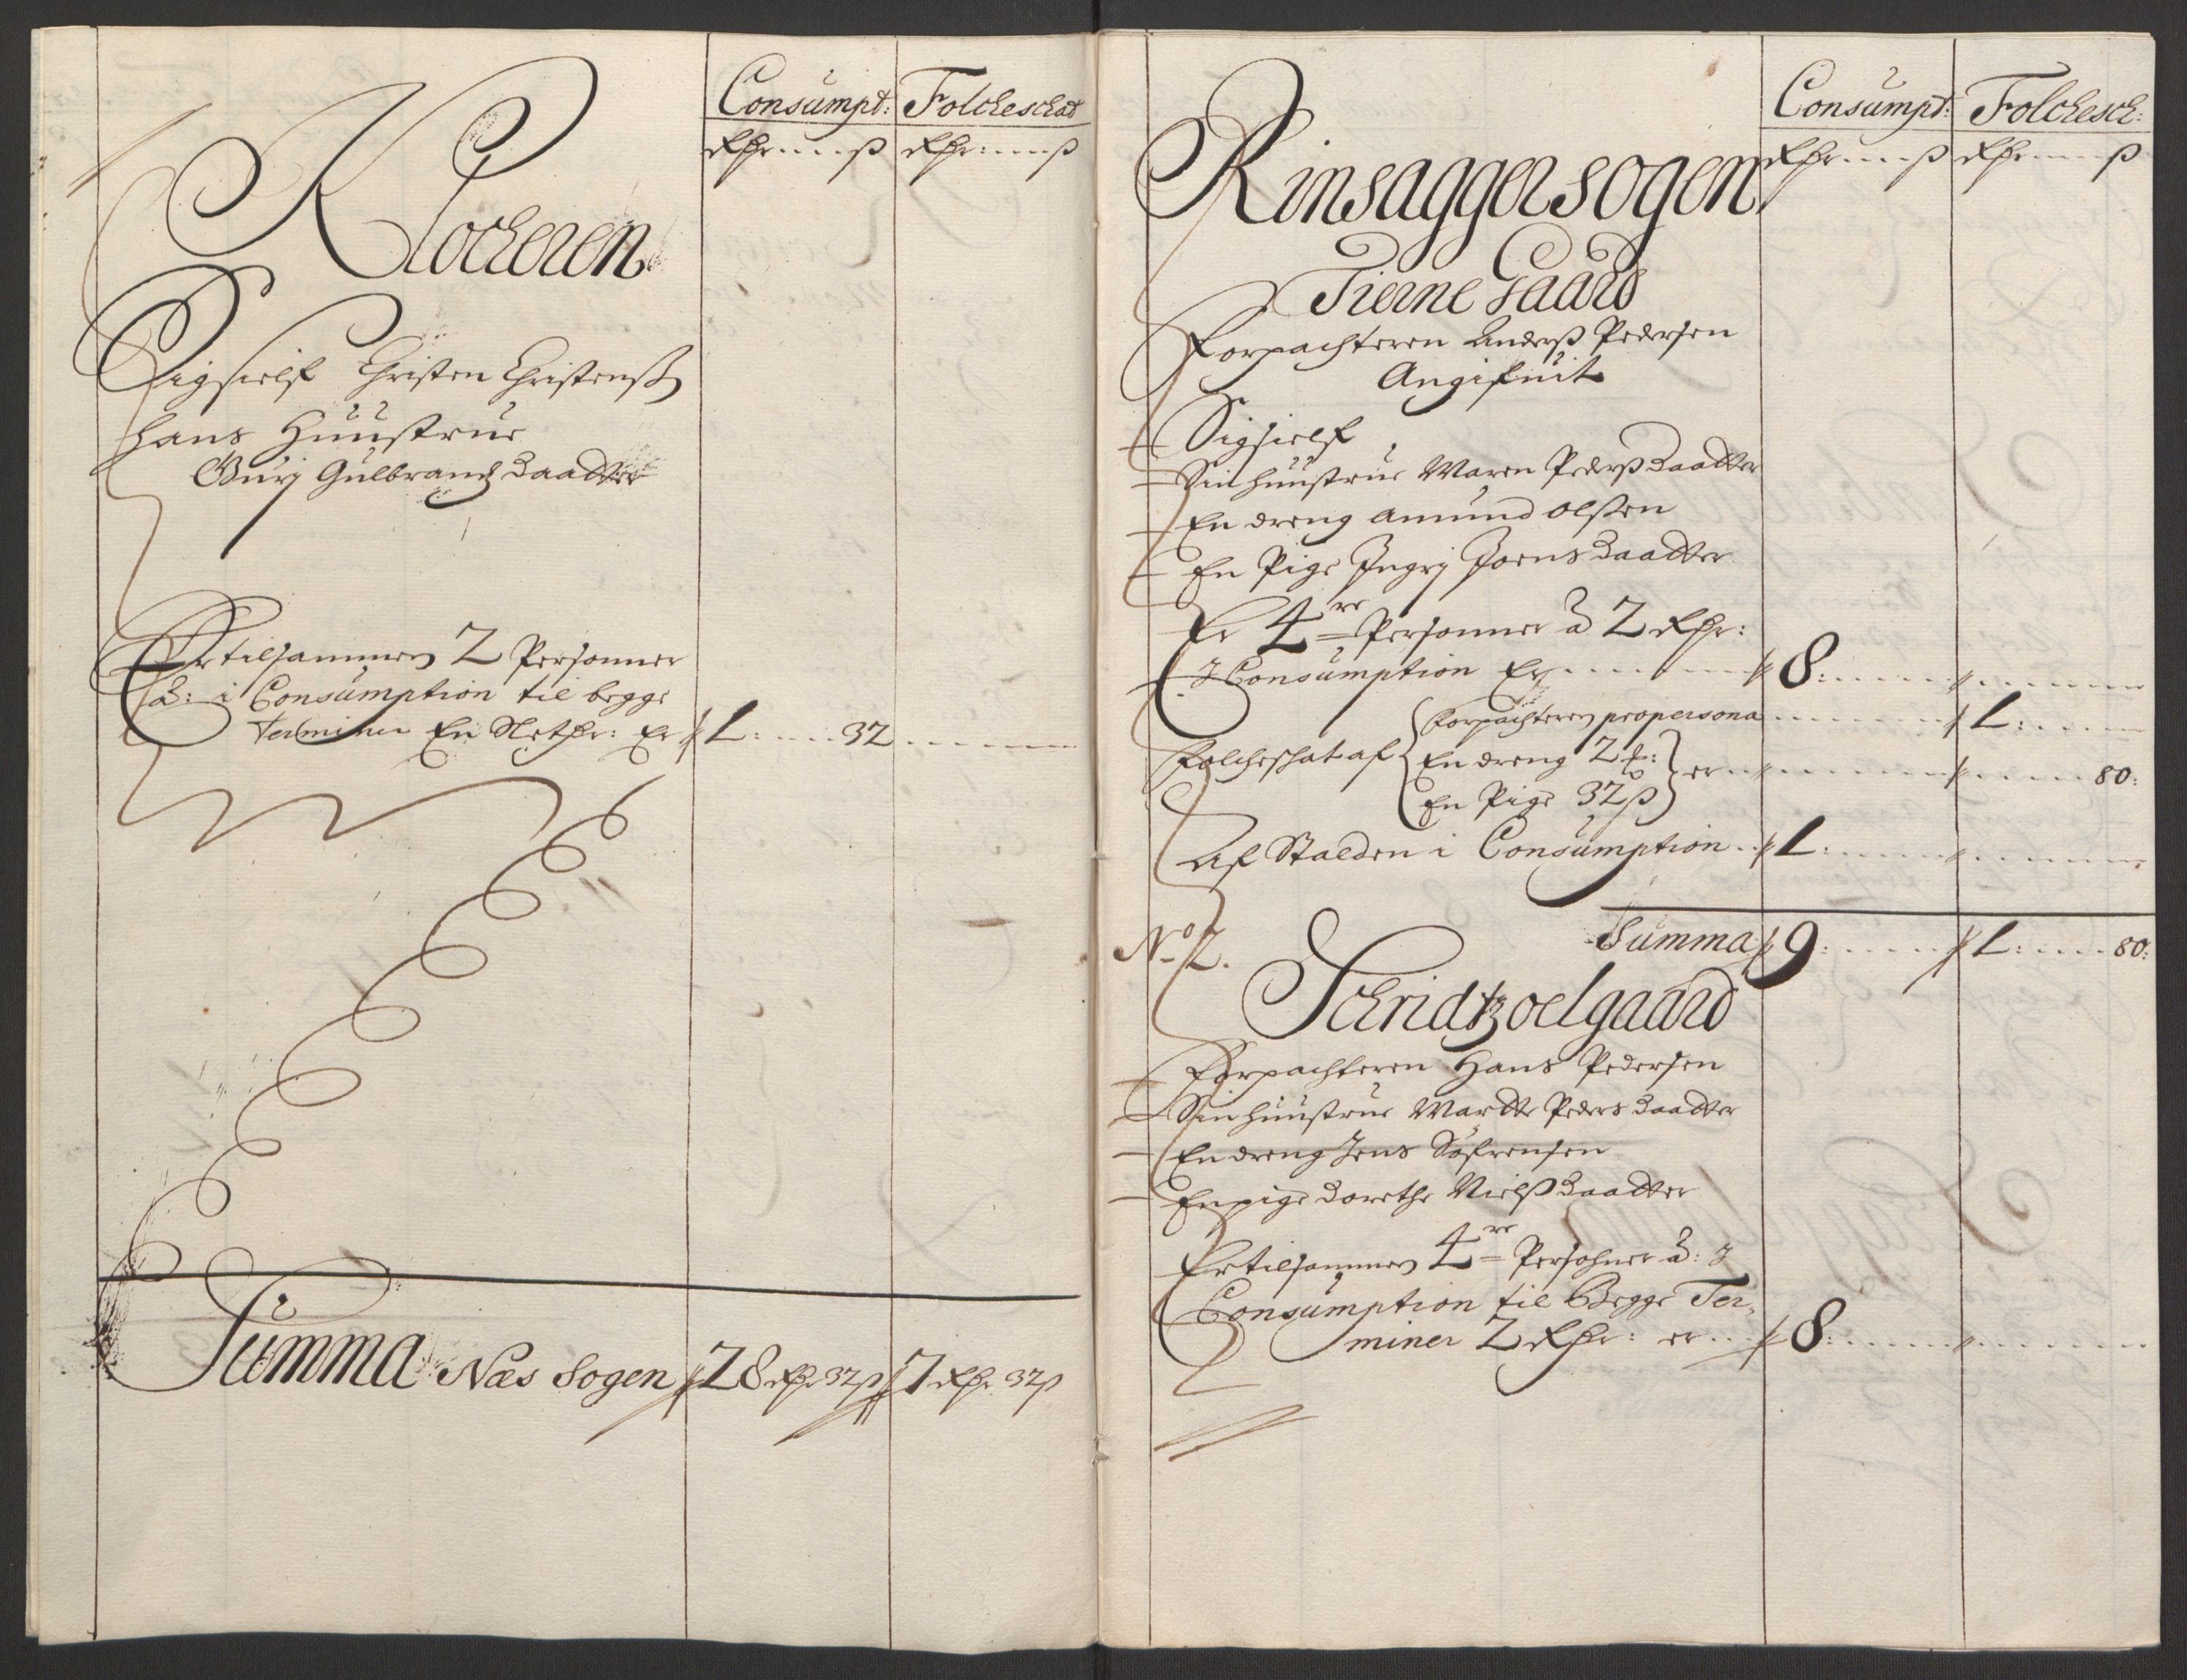 Consumpt: Folcheschat
Rdr: ß Rdr: ß
Klocheren
Sigsielf Christen Christensß
Hans Huustrue
Gurj Gulbrandß daatter
Er tilsammen 2 Personner
â: i Consumption til begge
Terminer En Sletdr: Er 1: 32
Summa Næs Sogen 28 Rdr 32 ß 7 Rdr 32 ß
Consumpt: Folchesch:
Rdr: ß Rdr: ß
Rinsaggersogen
Tierne Gaard
Forpachteren Anderß Pedersen
Angifuit
Sigsielf
Sin huustrue Maren Pederß daatter
En dreng Amund Olsten
En Pige Ingrj Joens daatter
Er 4re Personner â 2 Rdr:
I Consumption Er 8:
Folcheschat af
Forpachteren propersona 1:
En dreng 2 : er 80:
En Pige 32 ß
Af Stalden i Consumption 1:
Summa 9: 1: 80:
No 2.
Schridtzoelgaard
Forpachteren Hans Pedersen
Sin huustrue Martte Peders daatter
En dreng Jens Søfrensen
En pige Dorethe Nielß daatter
Er tilsammen 4re Persohner â: I
Consumption til Begge Ter-
miner 2 Rdr: er 8: